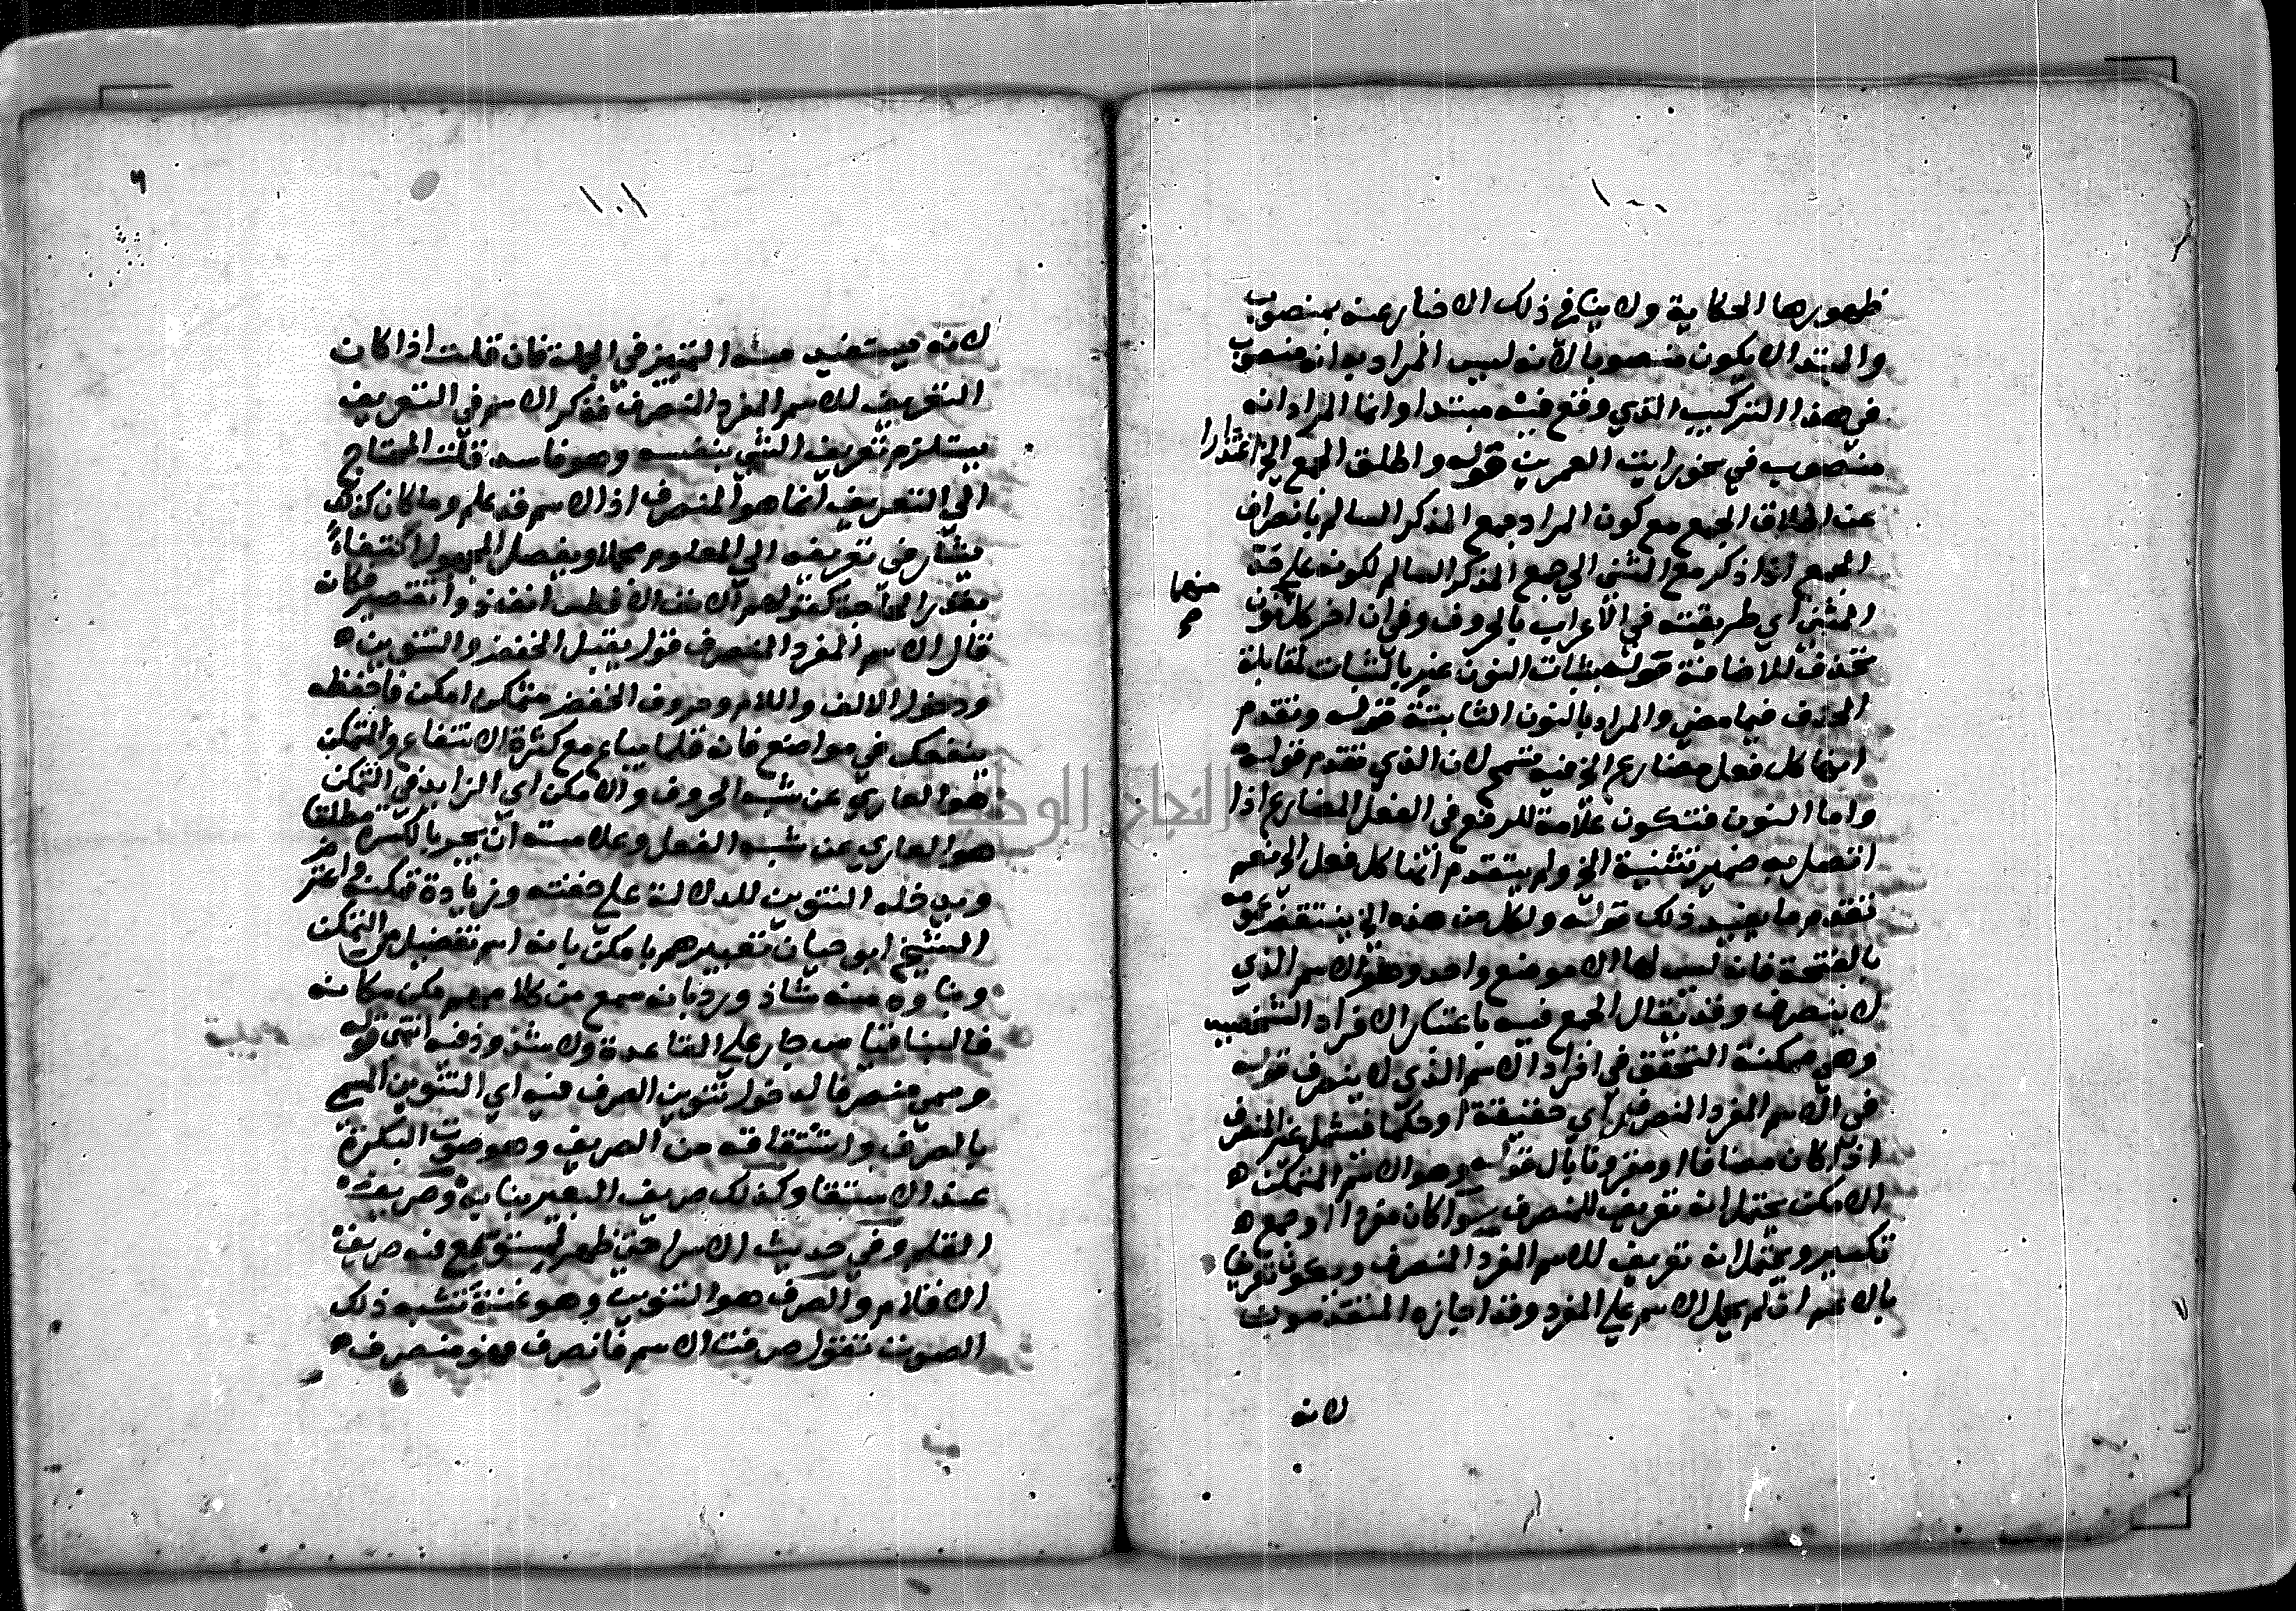 ١٠٠
ظهورها الحكاية ولا ينافي ذلك الاخبار عنه بمنصوب
والمبتدا لا يكون منصوبا لانه ليس المراد به انه منصوب
في هذا التركيب الذي وقع فيه مبتدا وانما المراد انه
منصوب في نحو رايت العمرين قوله واطلق الجمع الخ اعتذارا
عن اطلاق الجمع مع كون المراد جمع المذكر السالم بانصراف
الجمع اذا ذكر مع المثنى الى جمع المذكر السالم لكونه على حد
المثنى اي طريقته في الاعراب بالحروف وفي ان اخر كل نون
منهما
تحذف للاضافة قوله بثبات النون عبر بالثبات لمقابلة
الحذف فيما مضى والمراد بالنون الثابتة قوله وتقدم
انها كل فعل مضارع الخ فيه تسمح لان الذي تقدم قوله
واما النون فتكون علامة للرفع في الفعل المضارع اذا
اتصل به ضمير تثنية الخ ولم يتقدم انها كل فعل الخ نعم
تقدم ما يفيد ذلك قوله ولكل من هذه الخ ينتقض عمومه
بالفتحة فانه ليس لها الا موضع واحد وهو الاسم الذي
لا ينصرف وقد يقال الجمع فيه باعتبار الافراد الشخصية
وهي ممكنة التحقق في افراد الاسم الذي لا ينصرف قوله
في الاسم المفرد المنصرف اي حقيقة او حكما فيشمل غير المنصرف
اذا كان مضافا او مقرونا بال قوله وهو الاسم المتمكن
الامكن يحتمل انه تعريف للمنصرف سوا كان مفردا او جمع
تكسير ويحتمل انه تعريف للاسم المفرد المنصرف ويكون تعريفا
بالاعم ان لم يحمل الاسم على المفرد وقد اجازه المتقدمون
لانه
١٠١
لانه يستفيد منه التمييز في الجملة فان قلت اذا كان
التعريف للاسم المفرد المنصرف فذكر الاسم في التعريف
يستلزم تعريف الشي بنفسه وهو فاسد قلت المحتاج
الى التعريف انما هو المنصرف اذ الاسم قد علم وما كان كذلك
يشار في تعريفه الى المعلوم مجملا ويفصل المجهول اكتفاء
بقدر الحاجة كقولهم الانف الافطس انف ذو تقعير فكانه
قال الاسم المفرد المنصرف قول يقبل الخفض والتنوين
ودخول الالف واللام وحروف الخفض متمكن امكن فاحفظه
ينفعك في مواضع فانه قلما يباع مع كثرة الانتفاع والمتمكن
هو العاري عن شبه الحروف والامكن اي الزايد في التمكن
هو العاري عن شبه الفعل وعلامته ان يجر بالكسرة مطلقا
ويدخله التنوين للدلالة على خفته وزيادة تمكنه واعترض
الشيخ ابو حيان تعبيرهم بامكن بانه اسم تفضيل من التمكن
وبناوه منه شاذ ورد بانه سمع من كلامهم مكن مكانه
فالبنا قياس جار على القاعدة ولا شذوذ فيه انتهى قوله
وسمي منصرفا لدخول تنوين الصرف فيه اي التنوين المسمى
بالصرف واشتقاقه من الصريف وهو صوت البكرة
عند الاستقا وكذلك صريف البعير بنابه وصريف
القلم وفي حديث الاسرا حتى ظهر لمستوى يسمع فيه صريف
الاقلام والصرف هو التنوين وهو غنة تشبه ذلك
الصوت تقول صرفت الاسم فانصرف فهو منصرف